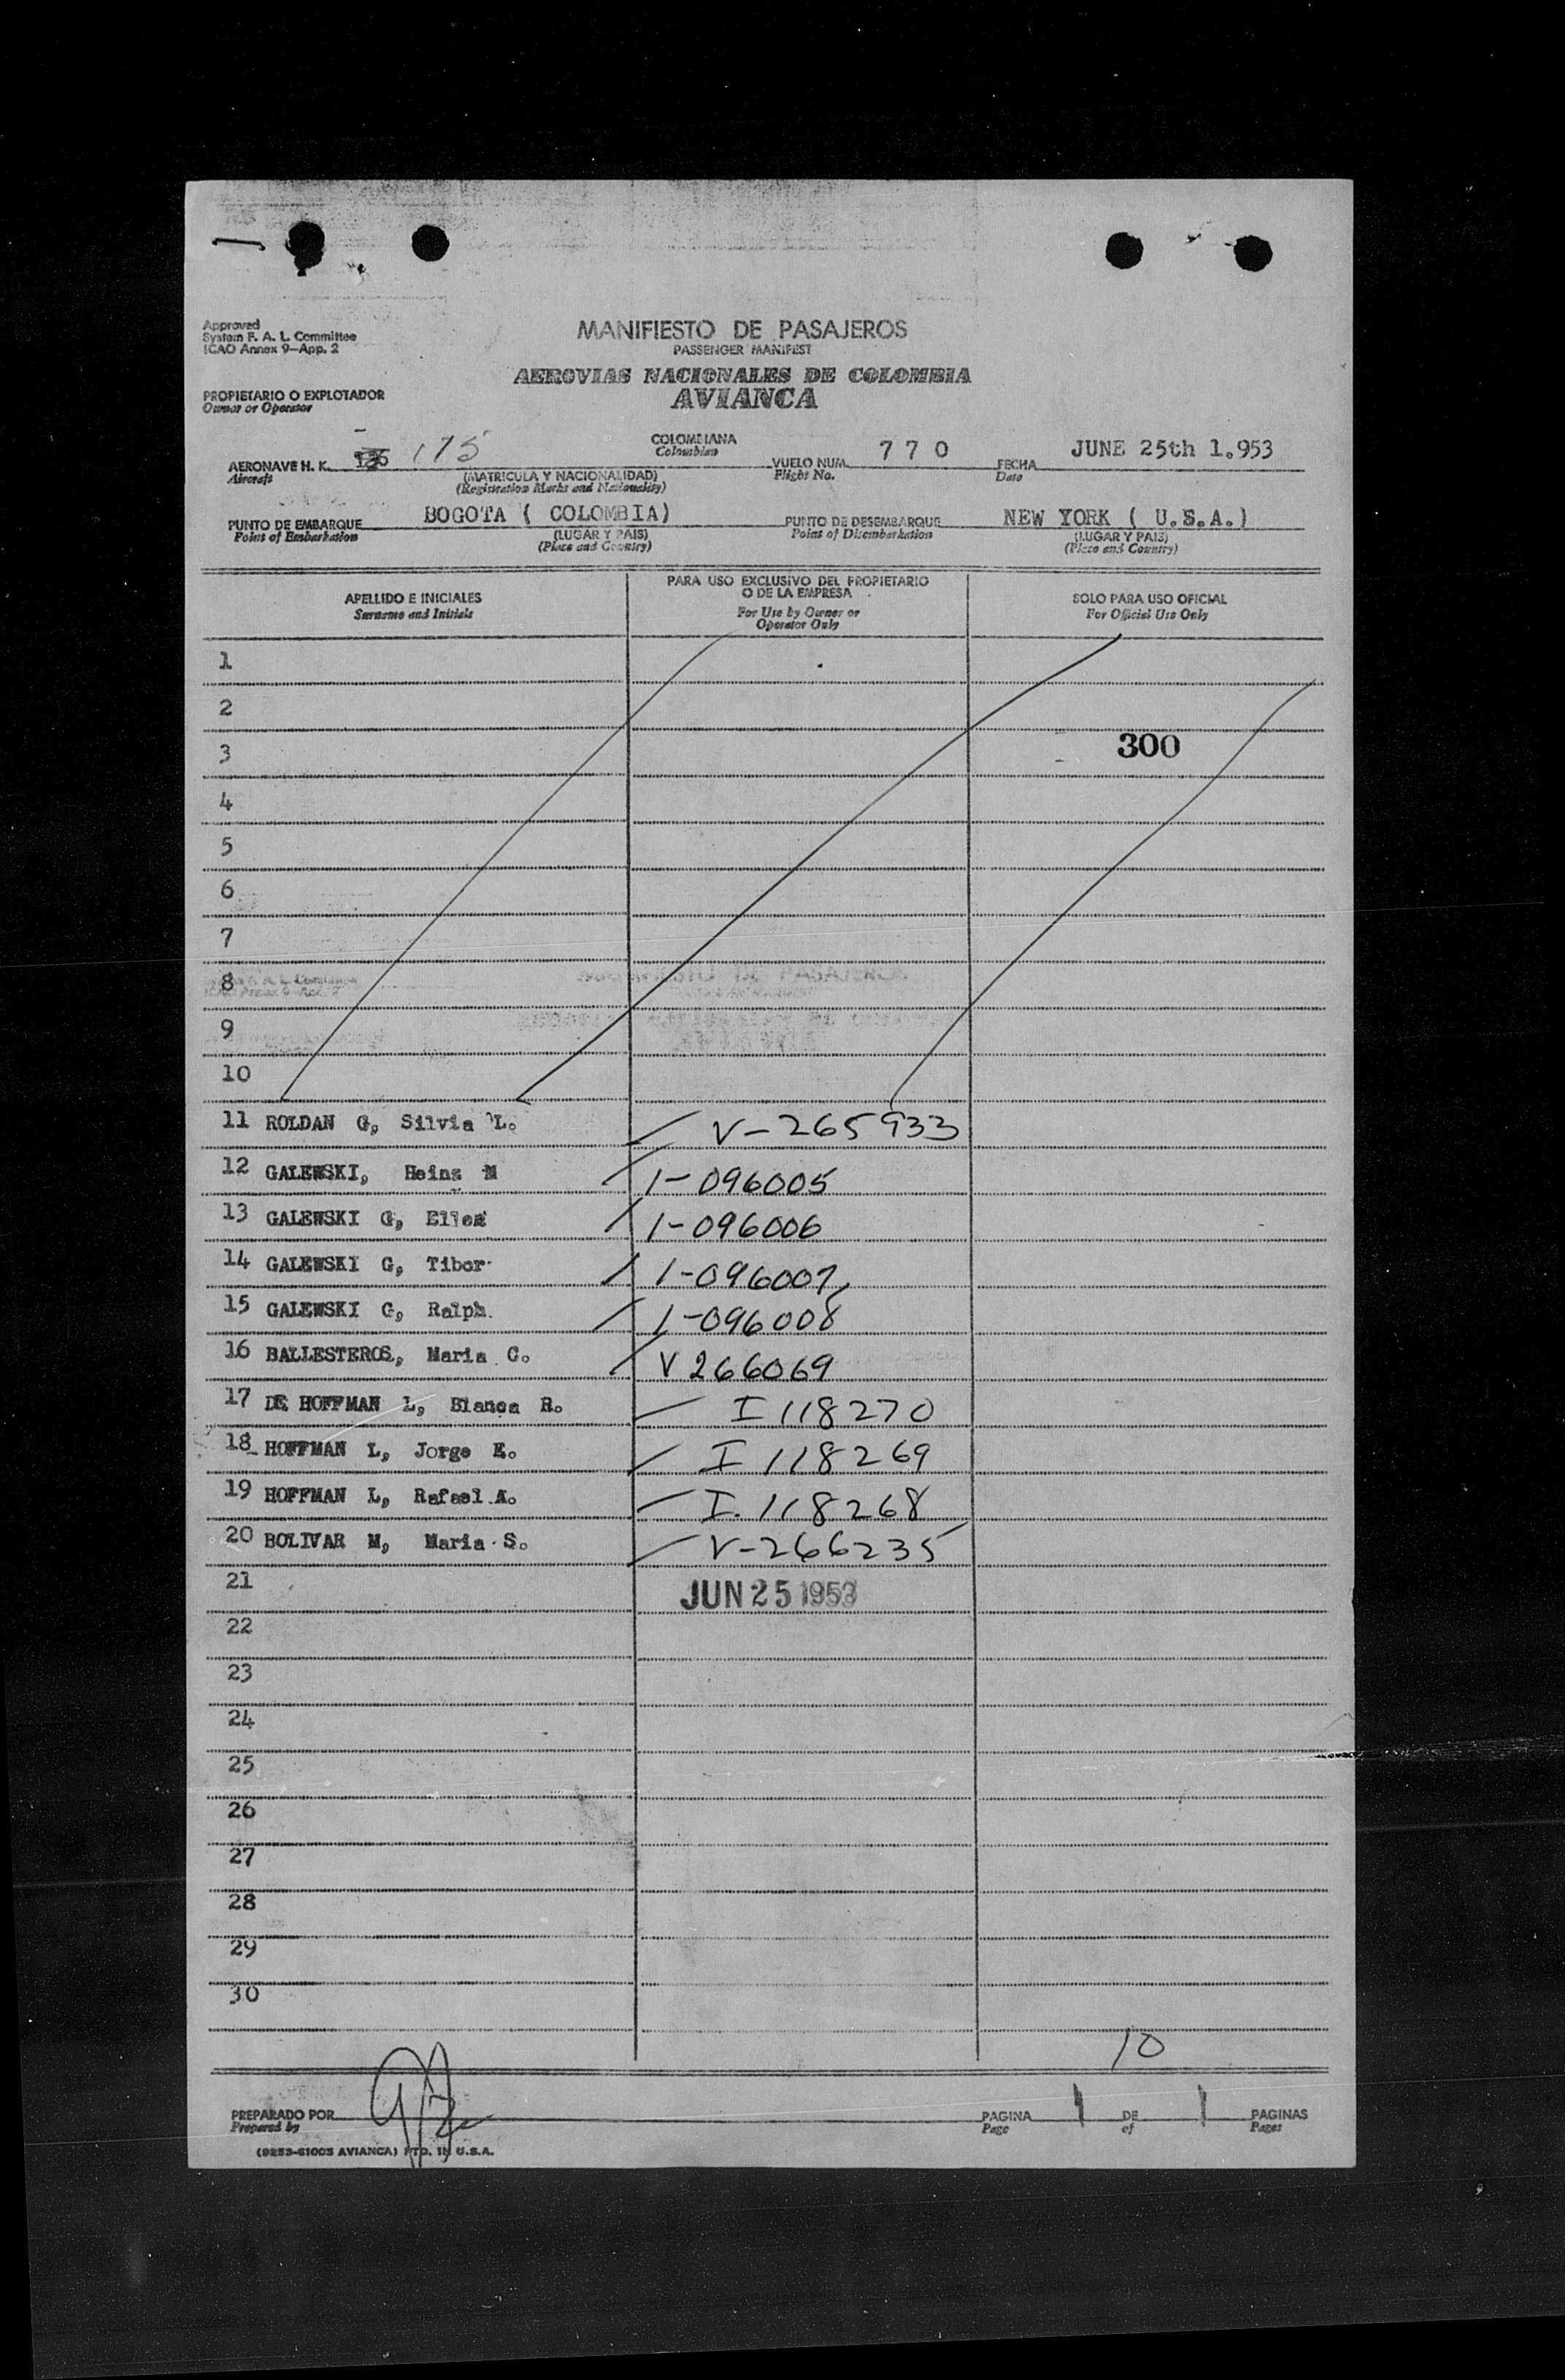 Approved
System F. A. L. Committee
ICAO Annex 9—App. 2
MANIFIESTO DE PASAJEROS
PASSENGER MANIFEST
AEROVIAS NACIONALES DE COLOMBIA
AVIANCA
PROPIETARIO O EXPLOTADOR
Owner or Operator
AERONAVE H. K. 175
Aircraft
(MATRICULA Y NACIONALIDAD)
(Registration Marks and Nationality)
COLOMBIANA
Colombian
VUELO NUM. 7 7 0
Flight No.
FECHA JUNE 25th 1.953
Date
PUNTO DE EMBARQUE BOGOTA ( COLOMBIA)
Point of Embarkation
(LUGAR Y PAIS)
(Place and Country)
PUNTO DE DESEMBARQUE NEW YORK ( U.S.A.)
Point of Disembarkation
(LUGAR Y PAIS)
(Place and Country)
APELLIDO E INICIALES
Surname and Initials
PARA USO EXCLUSIVO DEL PROPIETARIO
O DE LA EMPRESA
For Use by Owner or
Operator Only
SOLO PARA USO OFICIAL
For Official Use Only
1
2
3 300
4
5
6
7
8
9
10
11 ROLDAN G, Silvia L. V-265933
12 GALEWSKI, Heinz M 1-096005
13 GALEWSKI G, Ellen 1-096006
14 GALEWSKI G, Tibor 1-096007
15 GALEWSKI G, Ralph. 1-096008
16 BALLESTEROS, Maria C. V 266069
17 DE HOFFMAN L, Blanca R. I 118270
18 HOFFMAN L, Jorge E. I 118269
19 HOFFMAN L, Rafael A. I. 118268
20 BOLIVAR M, Maria S. V-266235
21 JUN 25 1953
22
23
24
25
26
27
28
29
30
10
PREPARADO POR
Prepared by
PAGINA 1 DE 1 PAGINAS
Page of Pages
(9253-6100S AVIANCA) PTD. IN U.S.A.